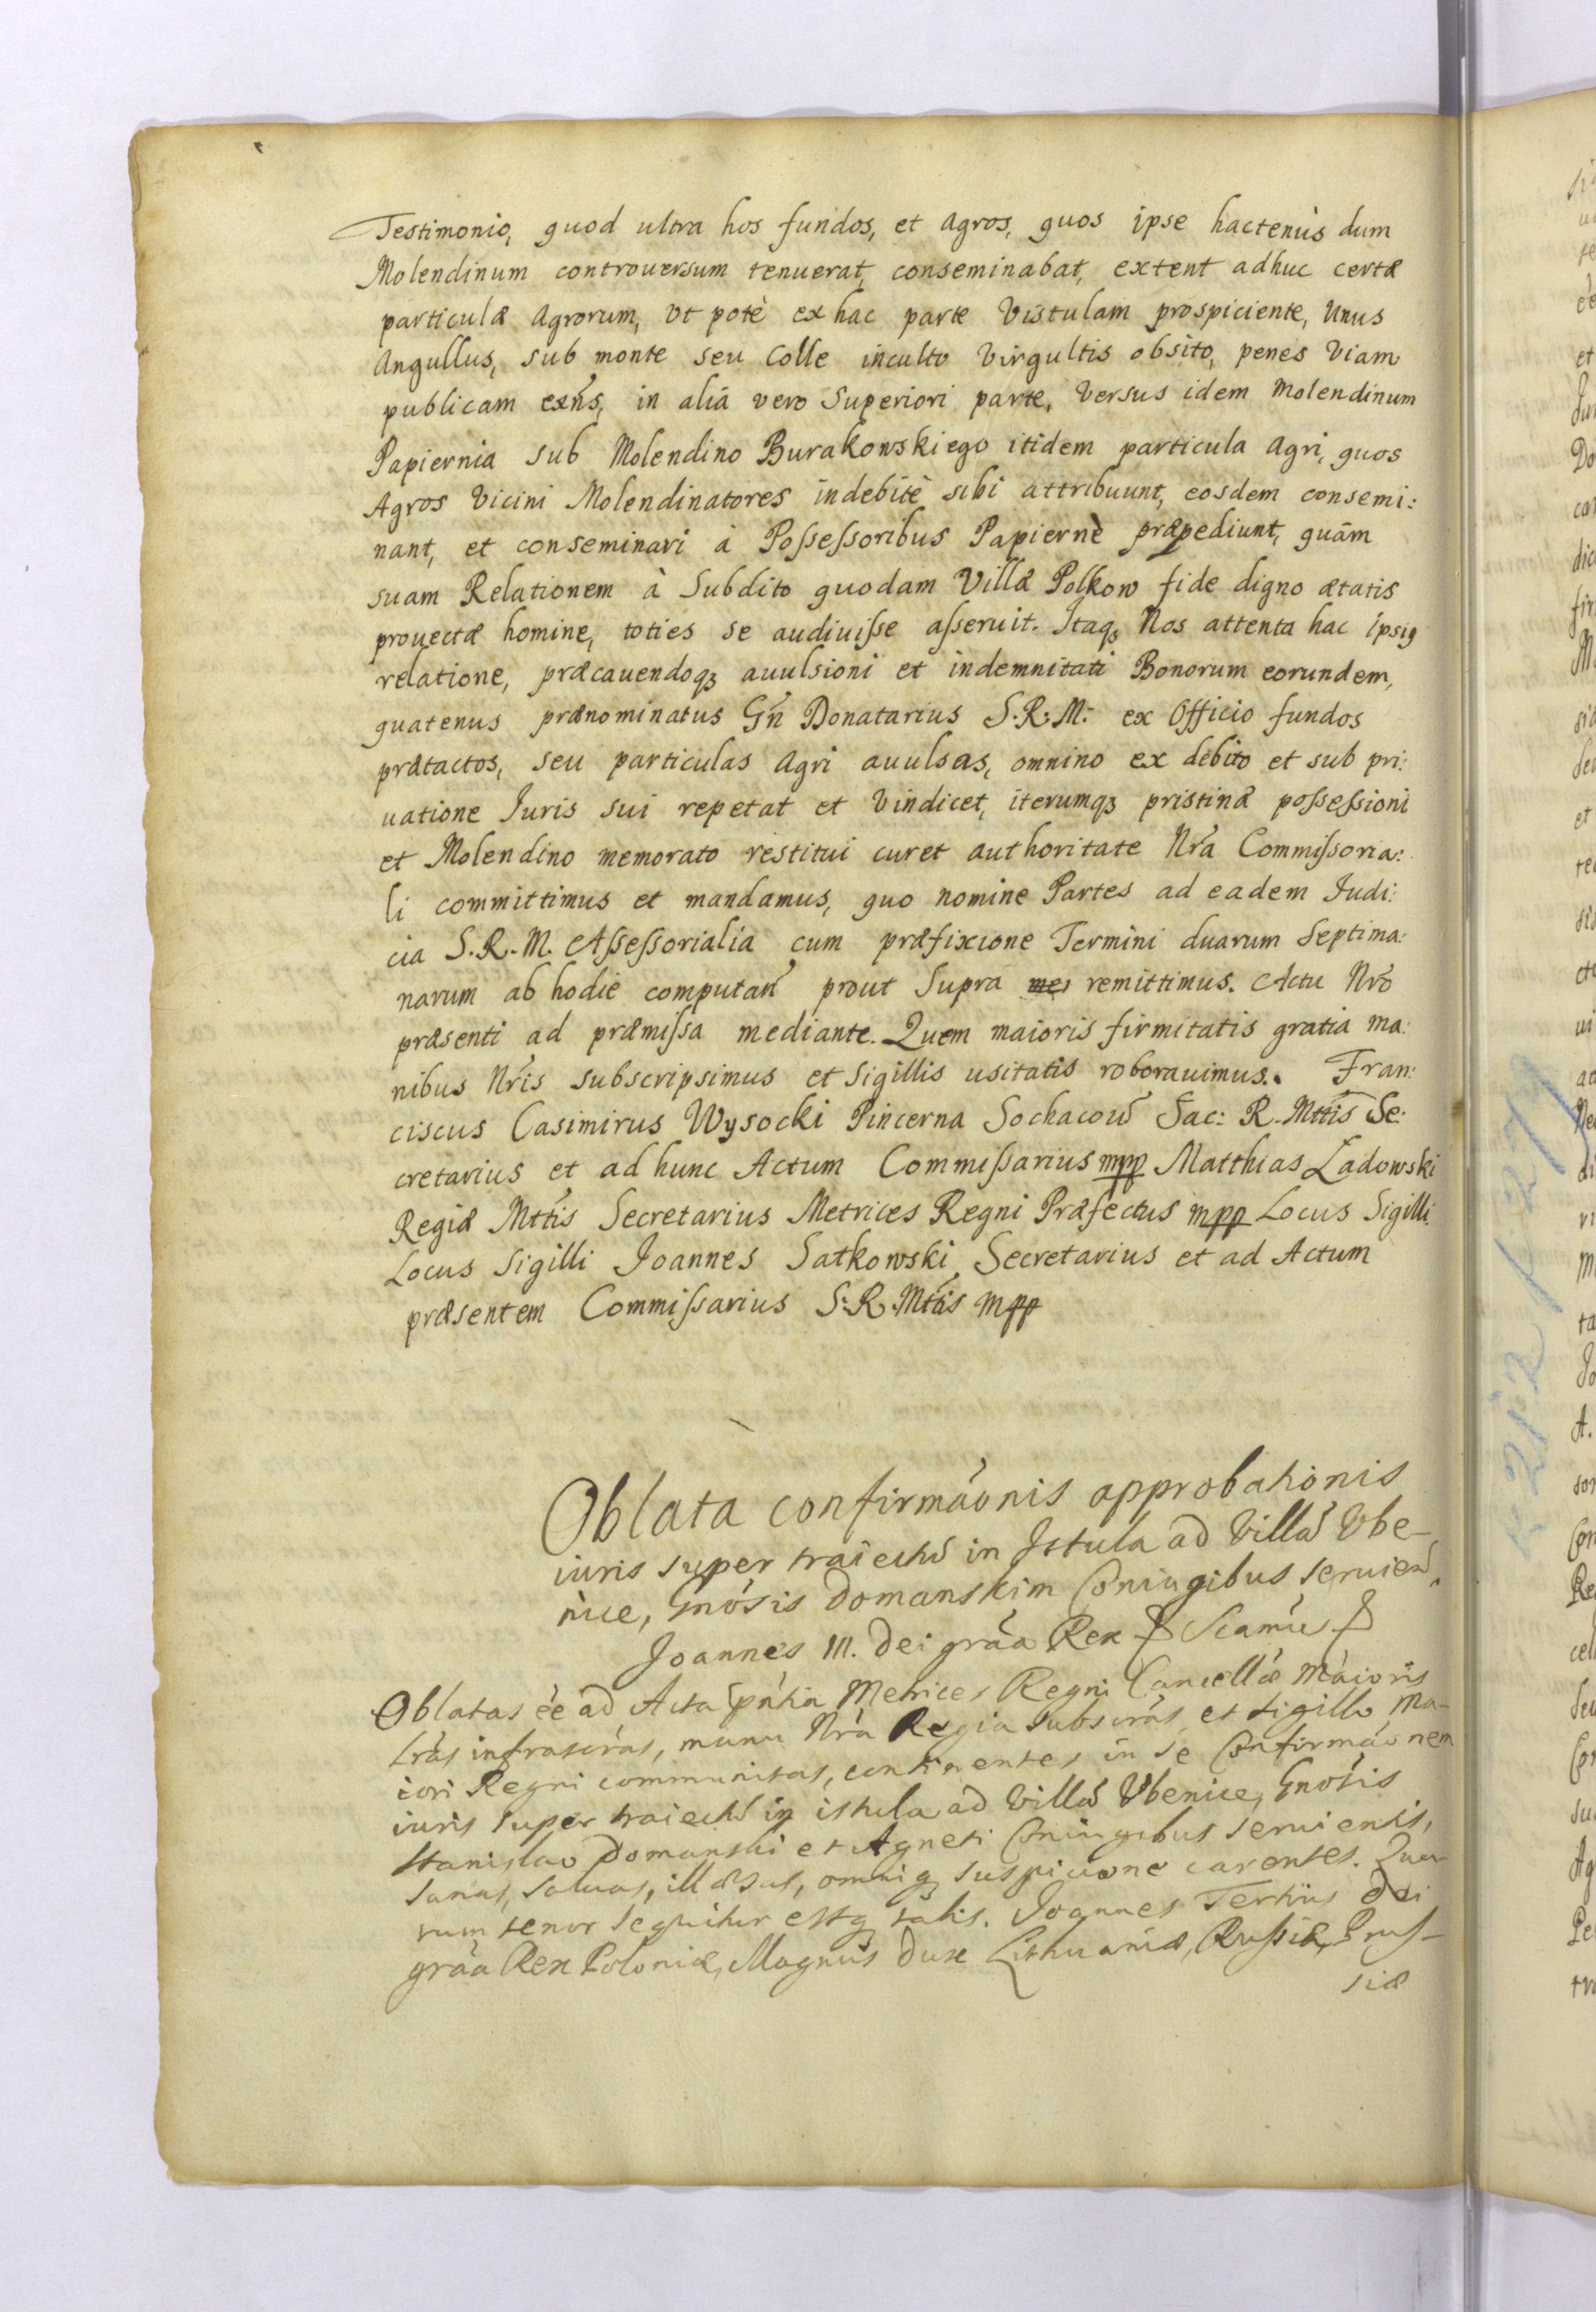 Testimonio, quod ultra hos fundos, et agros, quos ipse hactenùs dum
Molendinum controuersum tenuerat, conseminabat, extent adhuc certæ
particulæ Agrorum, vt potè ex hac parte Vistulam prospiciente, Unus
Angullus, sub monte seu Colle inculto Virgultis obsito, penes Viam
publicam exñs, in aliâ vero Superiori parte, Versus idem Molendinum
Papiernia sub Molendino Burakowskiego itidem particula Agri, quos
Agros Vicini Molendinatores indebitè sibi attribuunt, eosdem consemi:
nant, et conseminari à Poſseſsoribus Papiernè præpediunt, quām
suam Relationem à Subdito quodam Villæ Polkow fide digno ætatis
prouectæ homine, toties se audiuiſse aſseruit. Itaqꝫ Nos attenta hac ipsiꝯ
relatione, præcauendoqꝫ auulsioni et indemnitati Bonorum eorundem,
quatenus prænominatus Gñ Donatarius S.R.M: ex Officio fundos
prætactos, seu particulas Agri auulsas, omnino ex debito et sub pri:
uatione Iuris sui repetat et Vindicet, iterumqꝫ pristinæ poſseſsioni
et Molendino memorato restitui curet authoritate Nr̃a Commiſsoria:
li committimus et mandamus, quo nomine Partes ad eadem Iudi:
cia S.R.M. Aſseſsorialia cum præfixione Termini duarum Septima:
narum ab hodie computañ prout Supra remittimus. Actu Nr̃o
præsenti ad præmiſsa mediante. Quem maioris firmitatis gratia ma:
nibus Nr̃is subscripsimus et Sigillis usitatis roborauimus. Fran:
ciscus Casimirus Wysocki Pincerna Sochacow̃ Sac: R. Mttis Se:
cretarius et ad hunc Actum Commiſsarius mpp Matthias Ladowski
Regiæ Mttis Secretarius Metrices Regni Præfectus mpp Locus Sigilli
Locus Sigilli Joannes Satkowski Secretarius et ad Actum
præsentem Commiſsarius S:R.Mttis mpp
Oblata confirmãonis approbationis
iuris super traiectũ in Istula ad Villã Vbe-
nice, Gnõsis Domanskim Coniugibus seruieñ
Joannes III. Dei grãa Rex
Oblatas ẽe ad Acta pñtia Metrices Regni Cancellãe Maioris
lrãs infrascrãs, manu Nrã Regia subscrãs et sigillo Ma-
iori Regni communitas, continentes in se Confirmãonem
iuris super traiectũ in istula ad Villã Vbenice, Gnõsis
Stanislao Domanski et Agneti Coniugibus seruientis,
sanas, saluas, illæsas, omniqꝫ suspicione carentes. Qua-
rum tenor sequitur estqꝫ talis. Joannes Tertius Dei
grãa Rex Poloniæ, Magnus Dux Lithuaniæ, Ruſsiæ, Pruſ-
siæ